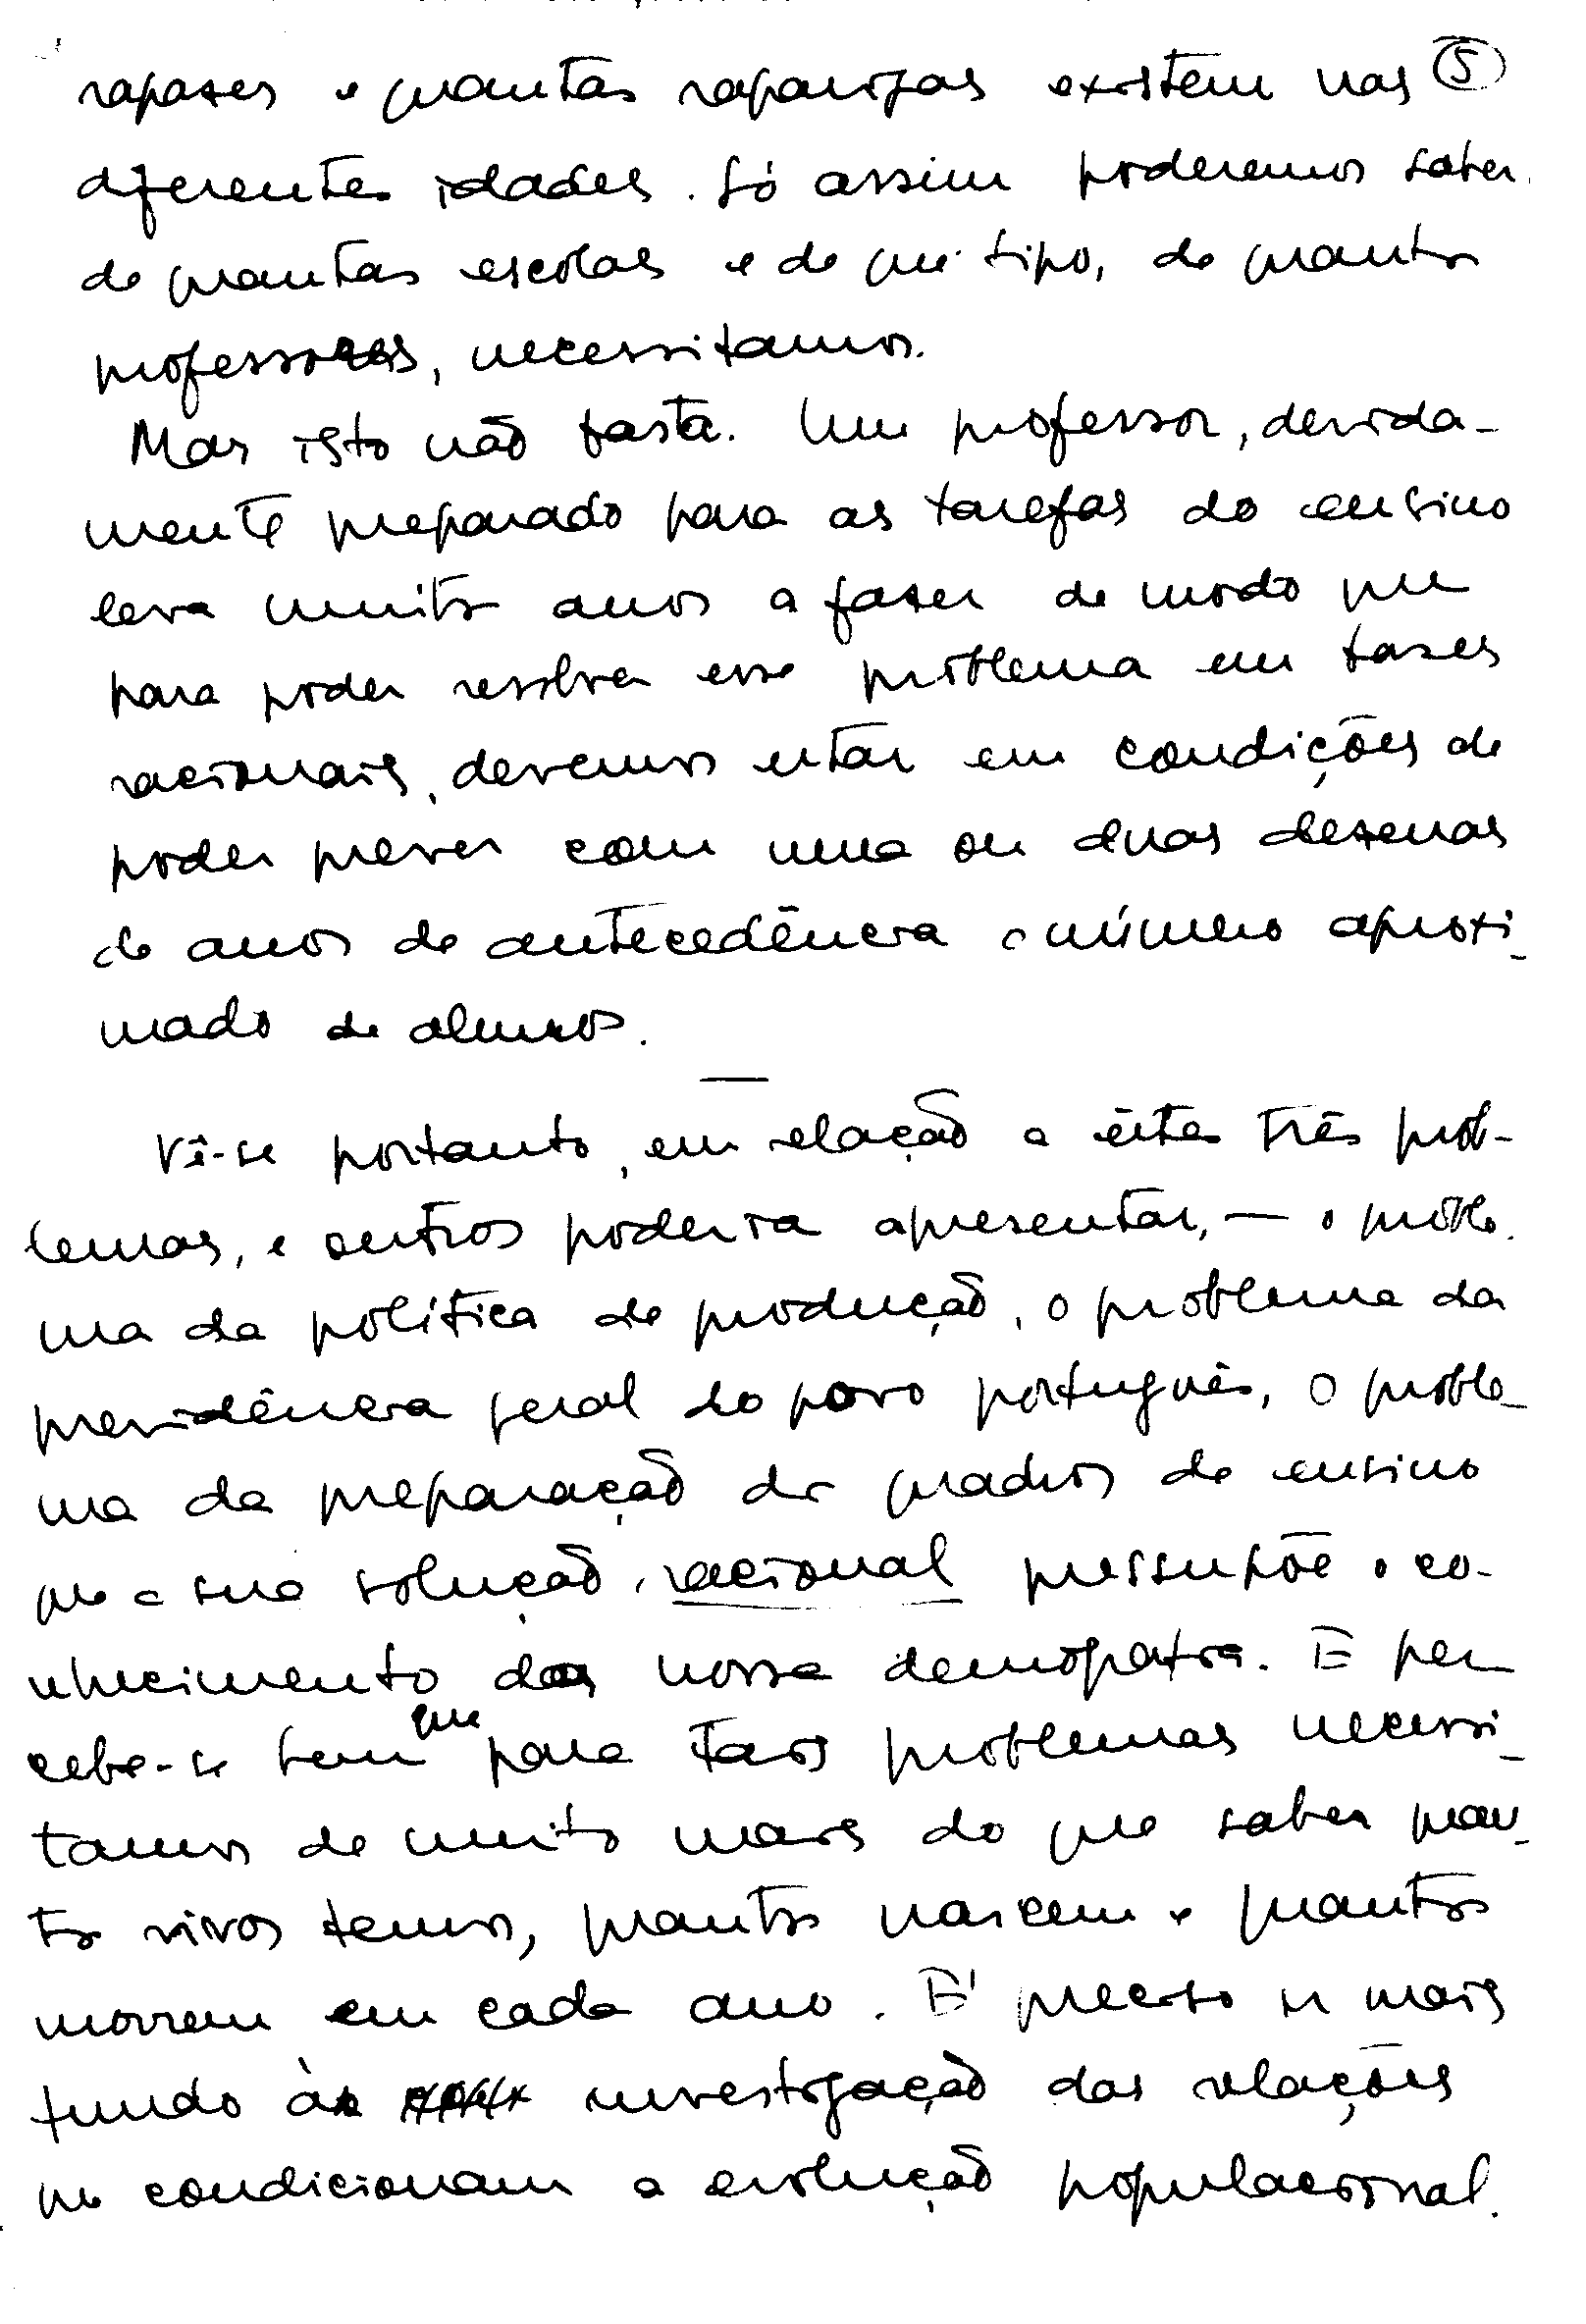 rapazes e quantas raparigas existem nas 5
diferentes idades. Só assim poderemos saber
de quantas escolas e de que tipo, de quantos
professores, necessitamos.
Mas isto não basta. Um professor, devida-
mente preparado para as tarefas do ensino
leva muitos anos a fazer de modo que
para poder resolver esse problema em bases
racionais, devemos estar em condições de
poder prever com uma ou duas dezenas
de anos de antecedência o número aproxi-
mado de alunos.
Vê-se portanto, em relação a êstes três prob-
lemas, e outros poderia apresentar, — o proble-
ma da política de produção, o problema da
previdência geral do povo português, o proble-
ma da preparação dos quadros de ensino
que a sua solução racional pressupõe o co-
nhecimento da nossa demografia. E per-
cebe-se bem que para tais problemas necessi-
tamos de muito mais do que saber quan-
tos vivos temos, quantos nascem e quantos
morrem em cada ano. É preciso ir mais
fundo à investigação das relações
que condicionam a evolução populacional.